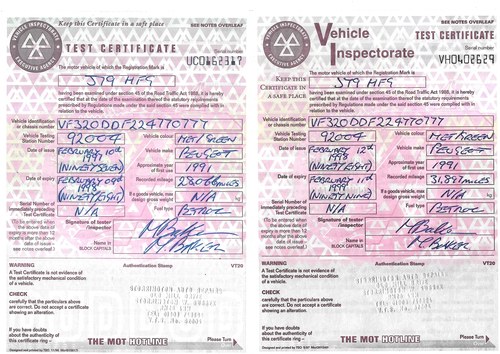 Keep this Certificate in a safe place
SEE NOTES OVERLEAF
TEST CERTIFICATE
Serial number
The motor vehicle of which the Registration Mark is
J79 HFG
having been examined under section 45 of the Road Traffic Act 1988, it is hereby
certified that at the date of the examination the statutory requirements
prescribed by Regulations made under the said section 45 were complied with in
relation to the vehicle.
Vehicle identification
or chassis number
VF320DDF224770777
Vehicle Testing
Station Number
92004
Vehicle colour
MET GREEN
Date of issue
FEBRUARY 10th
1997
(NINETY SEVEN)
Vehicle make
PEUGEOT
Approximate year
of first use
1991
Date of expiry
FEBRUARY 09th
1998
(NINETY EIGHT)
Recorded mileage
If a goods vehicle, max
design gross weight
N/A
Serial Number of
immediately preceding
Test Certificate
N/A
Fuel type
PETROL
(To be entered when
the above date of
expiry is more than 12
months after the
date of issue -
see notes overleaf.)
Signature of tester
/inspector
Name in
BLOCK CAPITALS
M BAKER
WARNING
A Test Certificate is not evidence of
the satisfactory mechanical condition
of a vehicle.
Authentication Stamp
VT20
CHECK
carefully that the particulars above
are correct. Do not accept a certificate
showing an alteration.
If you have doubts
about the authenticity
of this certificate ring –
THE MOT HOTLINE
Please Turn
Vehicle
Inspectorate
SEE NOTES OVERLEAF
TEST CERTIFICATE
Serial number
VH0402629
KEEP THIS
CERTIFICATE IN
A SAFE PLACE
The motor vehicle of which the Registration Mark is
J79 HFG
having been examined under section 45 of the Road Traffic Act 1988, it is hereby
certified that at the date of the examination the statutory requirements
prescribed by Regulations made under the said section 45 were complied with in
relation to the vehicle.
Vehicle identification
or chassis number
VF320DDF224770777
Vehicle Testing
Station Number
92004
Vehicle colour
MET GREEN
Date of issue
FEBRUARY 12th
1998
(NINETY EIGHT)
Vehicle make
PEUGEOT
Approximate year
of first use
1991
Date of expiry
FEBRUARY 11th
1999
(NINETY NINE)
Recorded mileage
31,897 MILES
If a goods vehicle, max
design gross weight
N/A
Serial Number of
immediately preceding
Test Certificate
N/A
Fuel type
PETROL
(To be entered when
the above date of
expiry is more than 12
months after the
date of issue -
see notes overleaf.)
Signature of tester
/inspector
Name in
BLOCK CAPITALS
M BAKER
WARNING
A Test Certificate is not evidence of
the satisfactory mechanical condition
of a vehicle.
Authentication Stamp
VT20
CHECK
carefully that the particulars above
are correct. Do not accept a certificate
showing an alteration.
If you have doubts
about the authenticity
of this certificate ring –
THE MOT HOTLINE
Please Turn